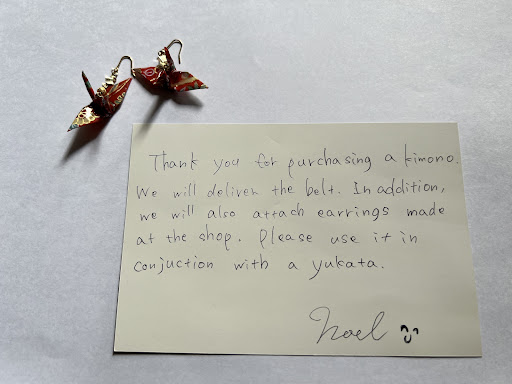 Thank you for purchasing a kimono.
We will deliver the belt. In addition,
we will also attach earrings made
at the shop. Please use it in
conjuction with a yukata.